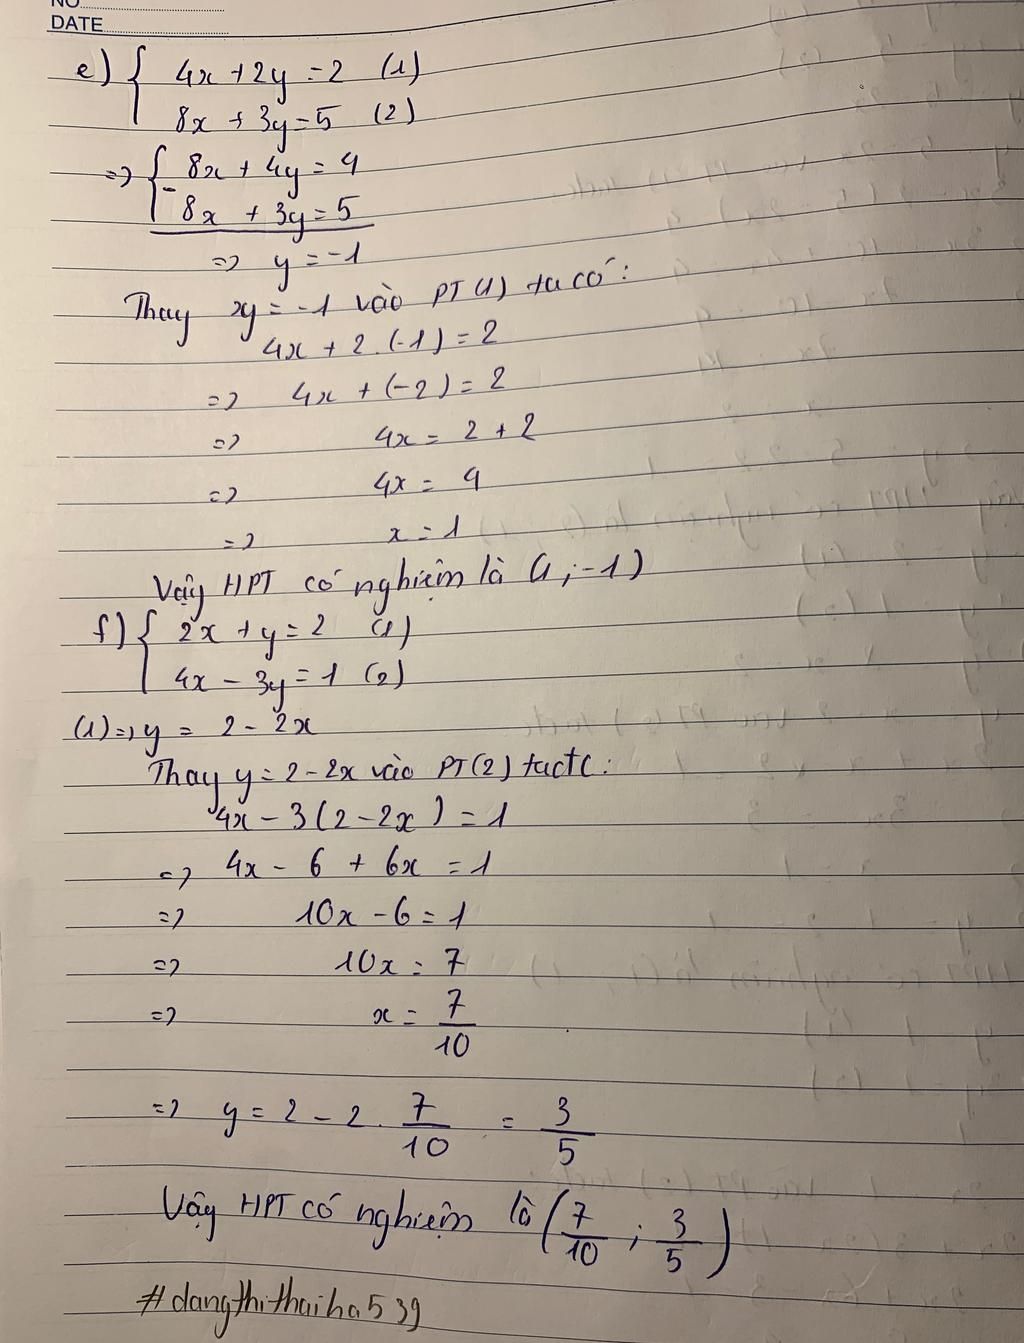 NO
DATE
e) { 4x + 2y = 2 (1)
8x + 3y = 5 (2)
=> { 8x + 4y = 4
- 8x + 3y = 5
=> y = -1
Thay y = -1 vào PT (1) ta có:
4x + 2.(-1) = 2
=> 4x + (-2) = 2
=> 4x = 2 + 2
=> 4x = 4
=> x = 1
Vậy HPT có nghiệm là (1; -1)
f) { 2x + y = 2 (1)
4x - 3y = 1 (2)
(1) => y = 2 - 2x
Thay y = 2 - 2x vào PT (2) tactc:
4x - 3(2 - 2x) = 1
=> 4x - 6 + 6x = 1
=> 10x - 6 = 1
=> 10x = 7
=> x = 7/10
=> y = 2 - 2. 7/10 = 3/5
Vậy HPT có nghiệm là (7/10; 3/5)
#dangthithaiha539